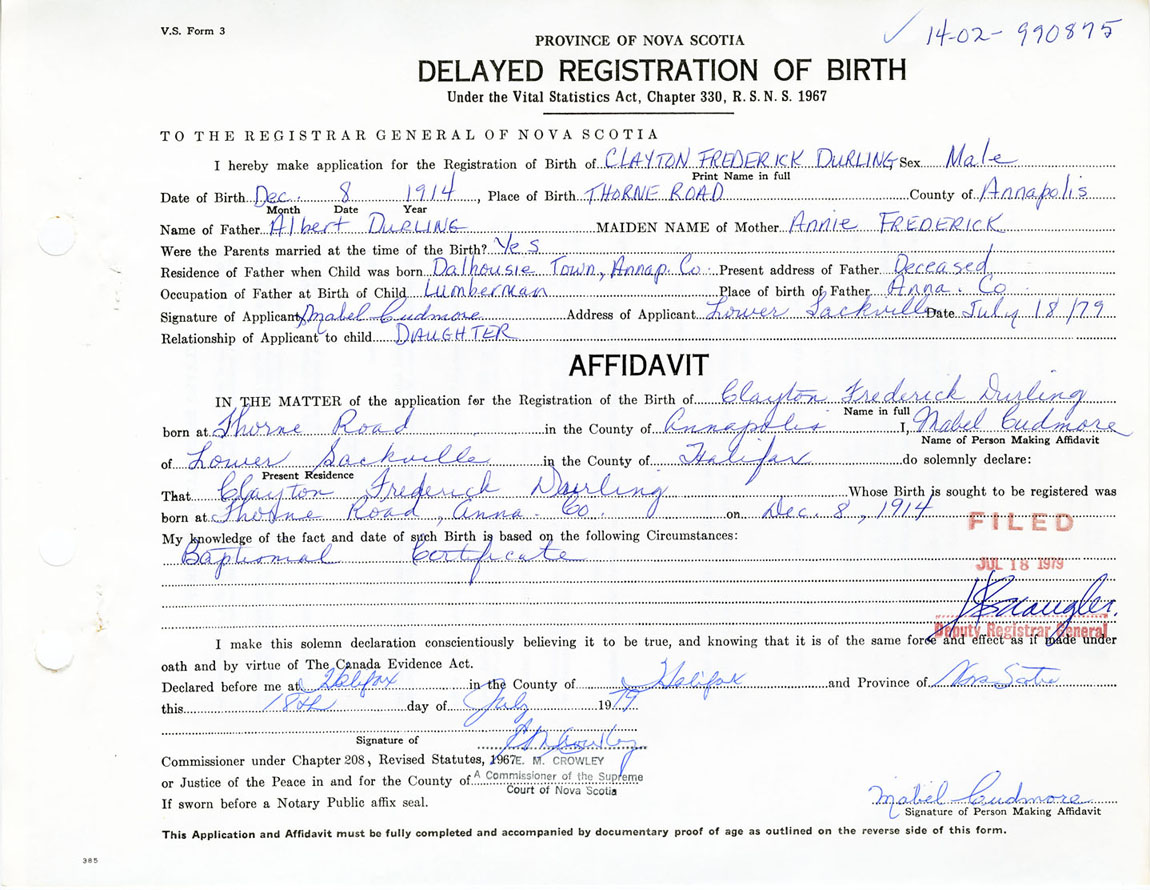 V.S. Form 3
✓ 14-02-990875
PROVINCE OF NOVA SCOTIA
DELAYED REGISTRATION OF BIRTH
Under the Vital Statistics Act, Chapter 330, R. S. N. S. 1967
TO THE REGISTRAR GENERAL OF NOVA SCOTIA
I hereby make application for the Registration of Birth of CLAYTON FREDERICK DURLING Sex Male
Print Name in full
Date of Birth Dec. 8 1914, Place of Birth THORNE ROAD County of Annapolis
Month Date Year
Name of Father Albert DURLING MAIDEN NAME of Mother Annie FREDERICK
Were the Parents married at the time of the Birth? Yes
Residence of Father when Child was born Dalhousie Town, Annap. Co. Present address of Father Deceased
Occupation of Father at Birth of Child Lumberman Place of birth of Father Anna. Co.
Signature of Applicant Mabel Cudmore Address of Applicant Lower Sackville Date July 18/79
Relationship of Applicant to child DAUGHTER
AFFIDAVIT
IN THE MATTER of the application for the Registration of the Birth of Clayton Frederick Durling
Name in full
born at Thorne Road in the County of Annapolis I, Mabel Cudmore
Name of Person Making Affidavit
of Lower Sackville in the County of Halifax do solemnly declare:
Present Residence
That Clayton Frederick Durling Whose Birth is sought to be registered was
born at Thorne Road, Anna. Co. on Dec. 8, 1914
FILED
My knowledge of the fact and date of such Birth is based on the following Circumstances:
Baptismal Certificate
JUL 18 1979
Deputy Registrar General
I make this solemn declaration conscientiously believing it to be true, and knowing that it is of the same force and effect as if made under
oath and by virtue of The Canada Evidence Act.
Declared before me at Halifax in the County of Halifax and Province of Nova Scotia
this 18th day of July 1979
Signature of
Commissioner under Chapter 208, Revised Statutes, 1967 E. M. CROWLEY
or Justice of the Peace in and for the County of A Commissioner of the Supreme
Court of Nova Scotia
If sworn before a Notary Public affix seal.
Mabel Cudmore
Signature of Person Making Affidavit
This Application and Affidavit must be fully completed and accompanied by documentary proof of age as outlined on the reverse side of this form.
385